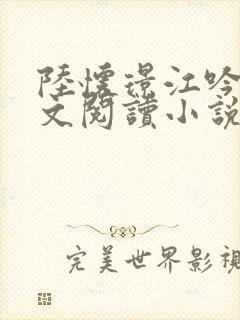 陸懷璟江吟
文閱讀小說
完美世界影視